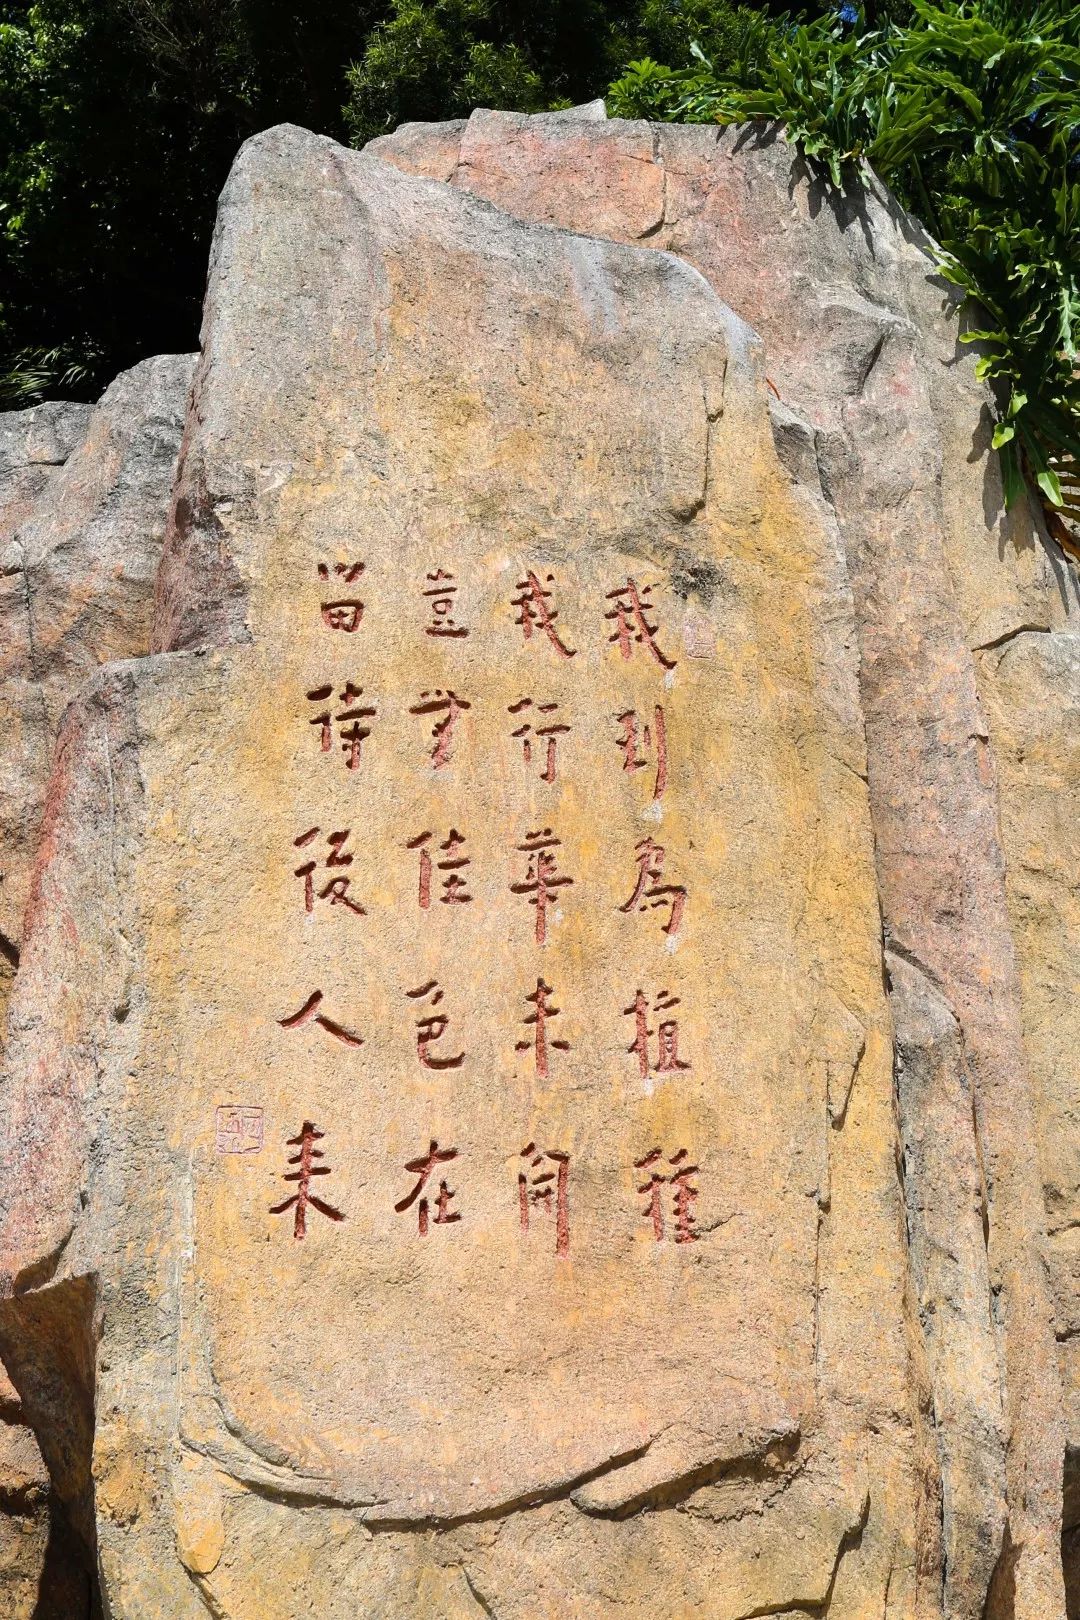 我到為植種
我行華未開
豈無佳色在
留待後人來